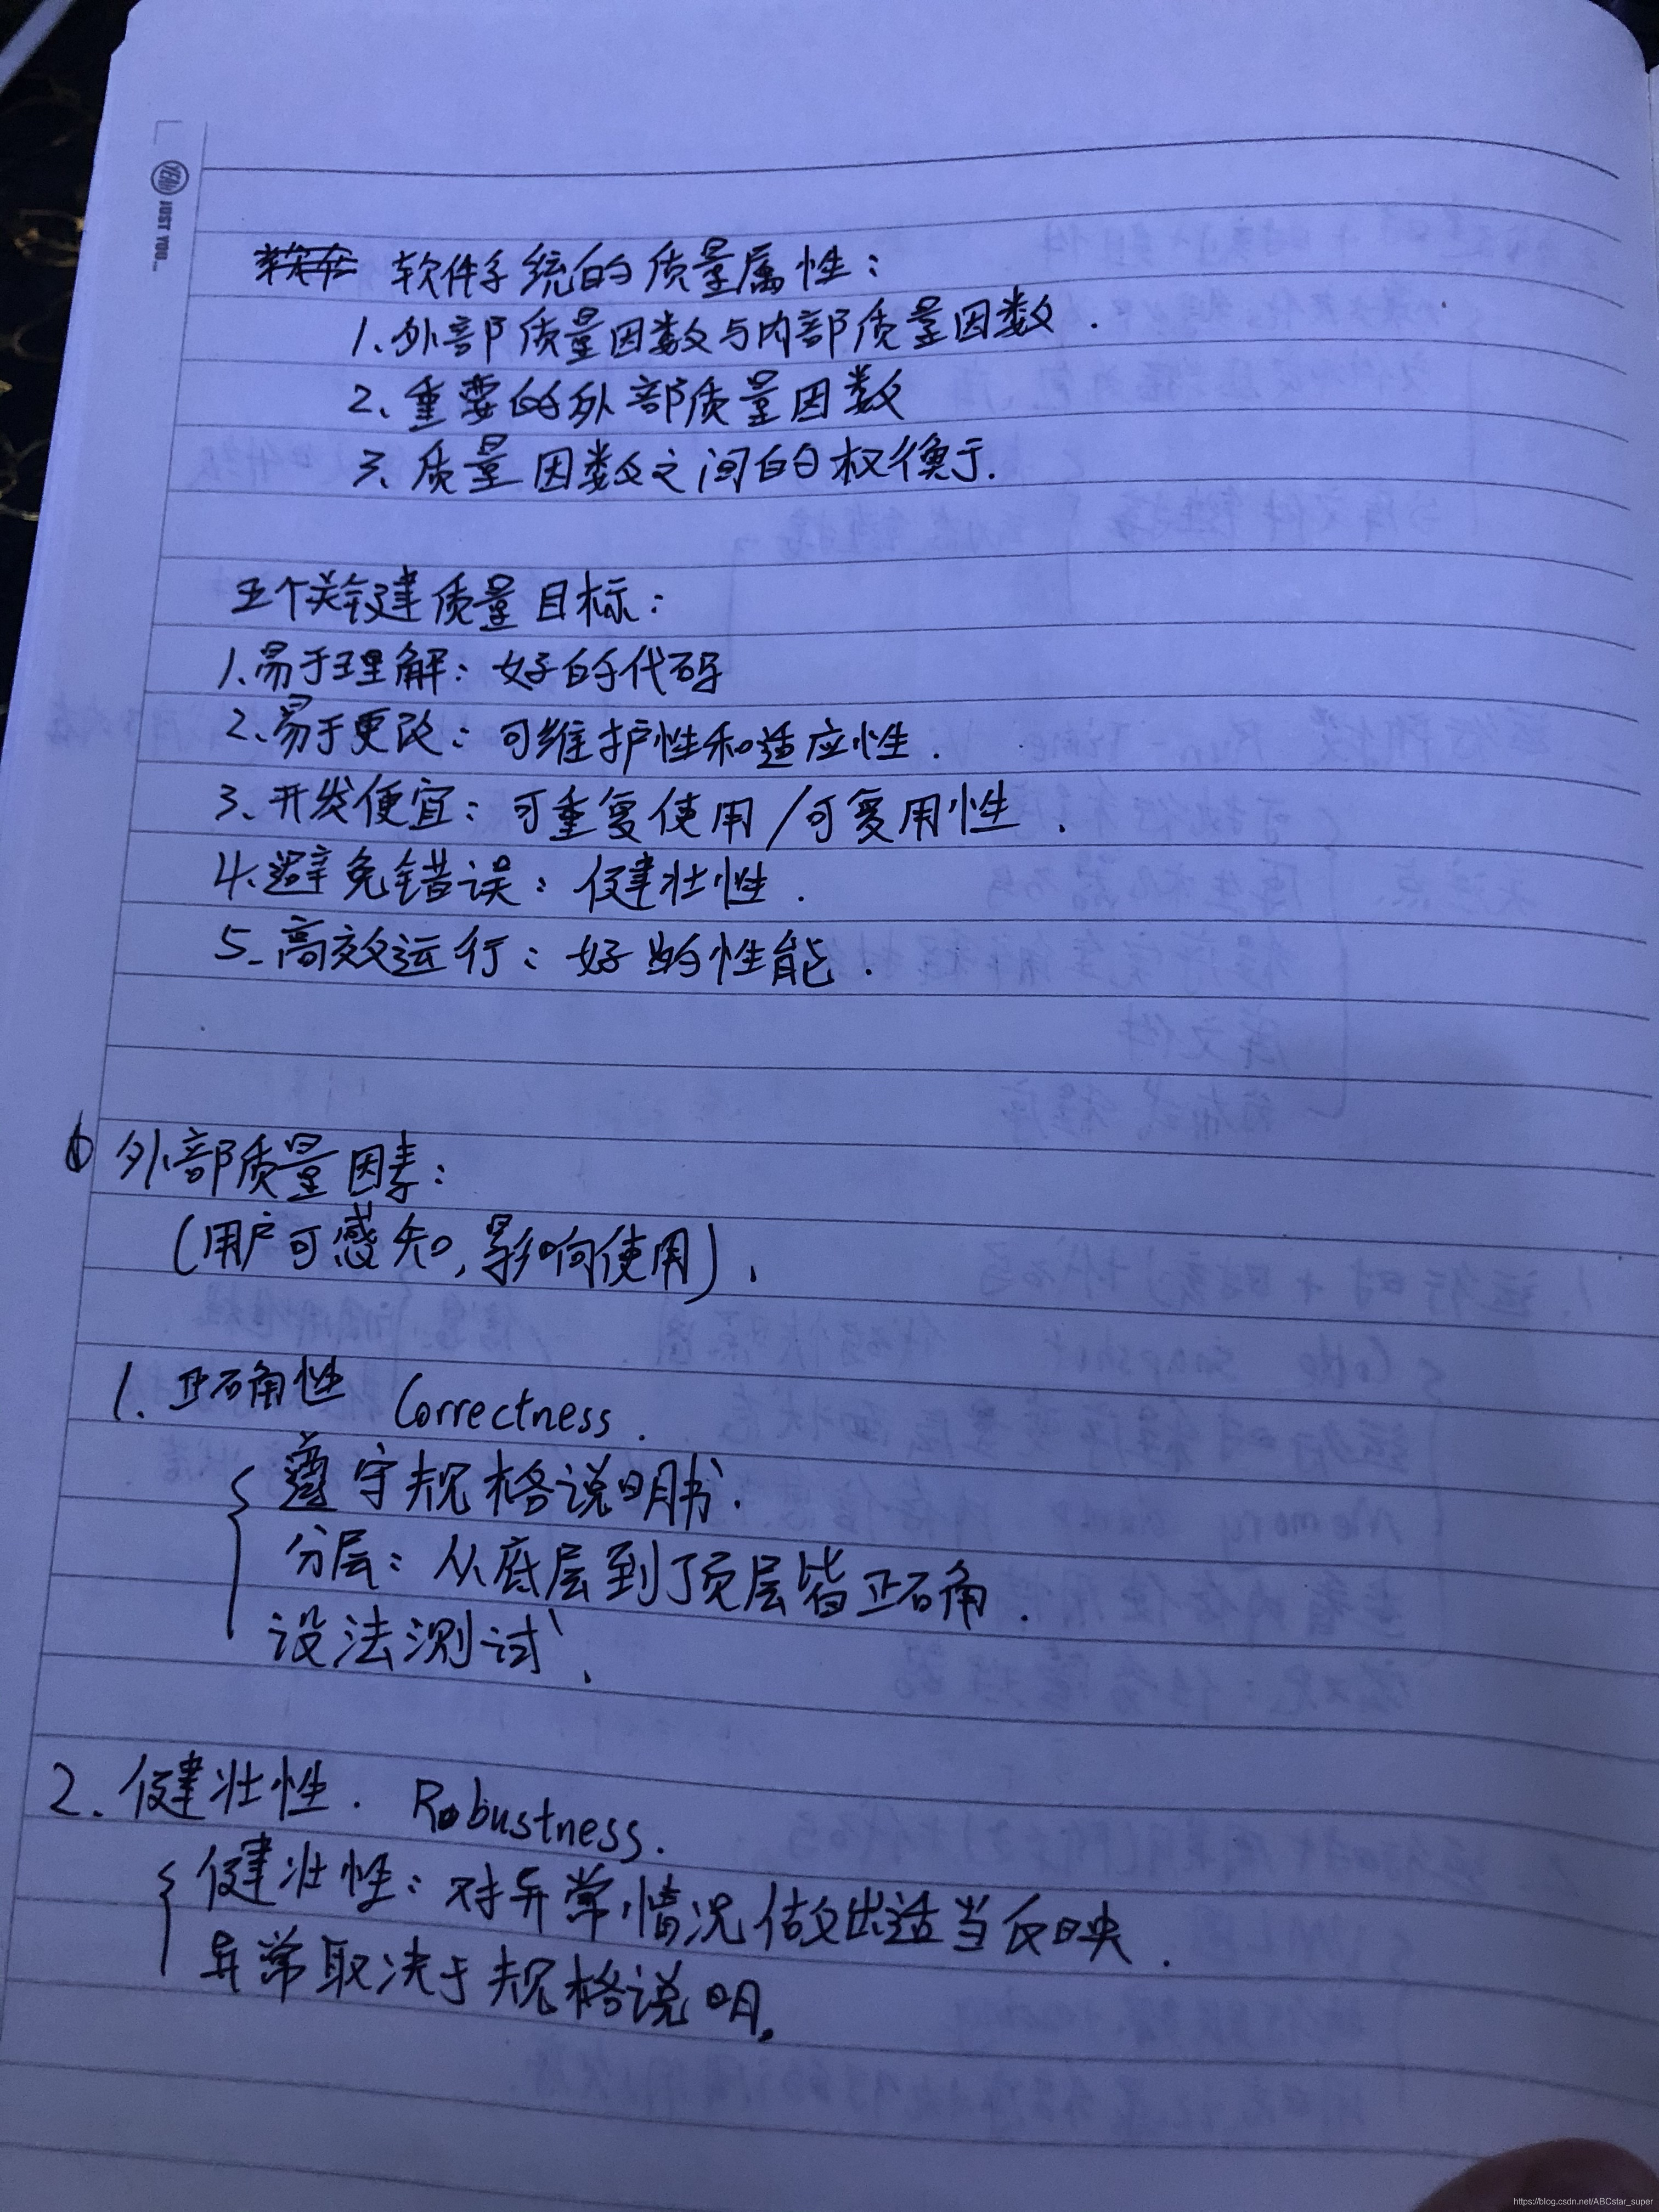 YEAH JUST YOU...
软件系统的质量属性：
1、外部质量因数与内部质量因数.
2、重要的外部质量因数
3、质量因数之间的权衡于.
五个关键质量目标：
1、易于理解：好的代码
2、易于更改：可维护性和适应性.
3、开发便宜：可重复使用/可复用性.
4、避免错误：健壮性.
5、高效运行：好的性能.
外部质量因素：
(用户可感知,影响使用).
1. 正确性 Correctness.
遵守规格说明书.
分层：从底层到顶层皆正确.
设法测试.
2. 健壮性. Robustness.
健壮性：对异常情况做出适当反映.
异常取决于规格说明.
https://blog.csdn.net/ABCstar_super